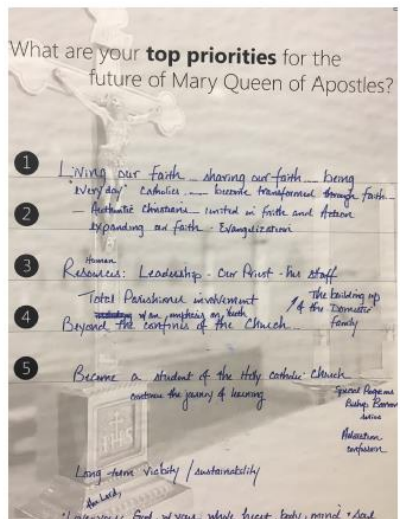 What are your top priorities for the
future of Mary Queen of Apostles?
1
Living our faith - sharing our faith - being
"everyday" Catholics - become transformed through faith -
2
- Authentic Christians united in Faith and Action
expanding our faith - Evangelization
3
Human
Resources: Leadership - Our Priest - his staff
Total Parishioner involvement
w/ an emphasis on youth
The building up
of the Domestic
family
4
Beyond the confines of the Church
5
Become a student of the Holy Catholic Church
continue the journey of learning
Special Programs
Bishop Barron
series
Adoration
confession
IHS
Long-term viability / sustainability
God w/ your whole heart, body, mind + soul